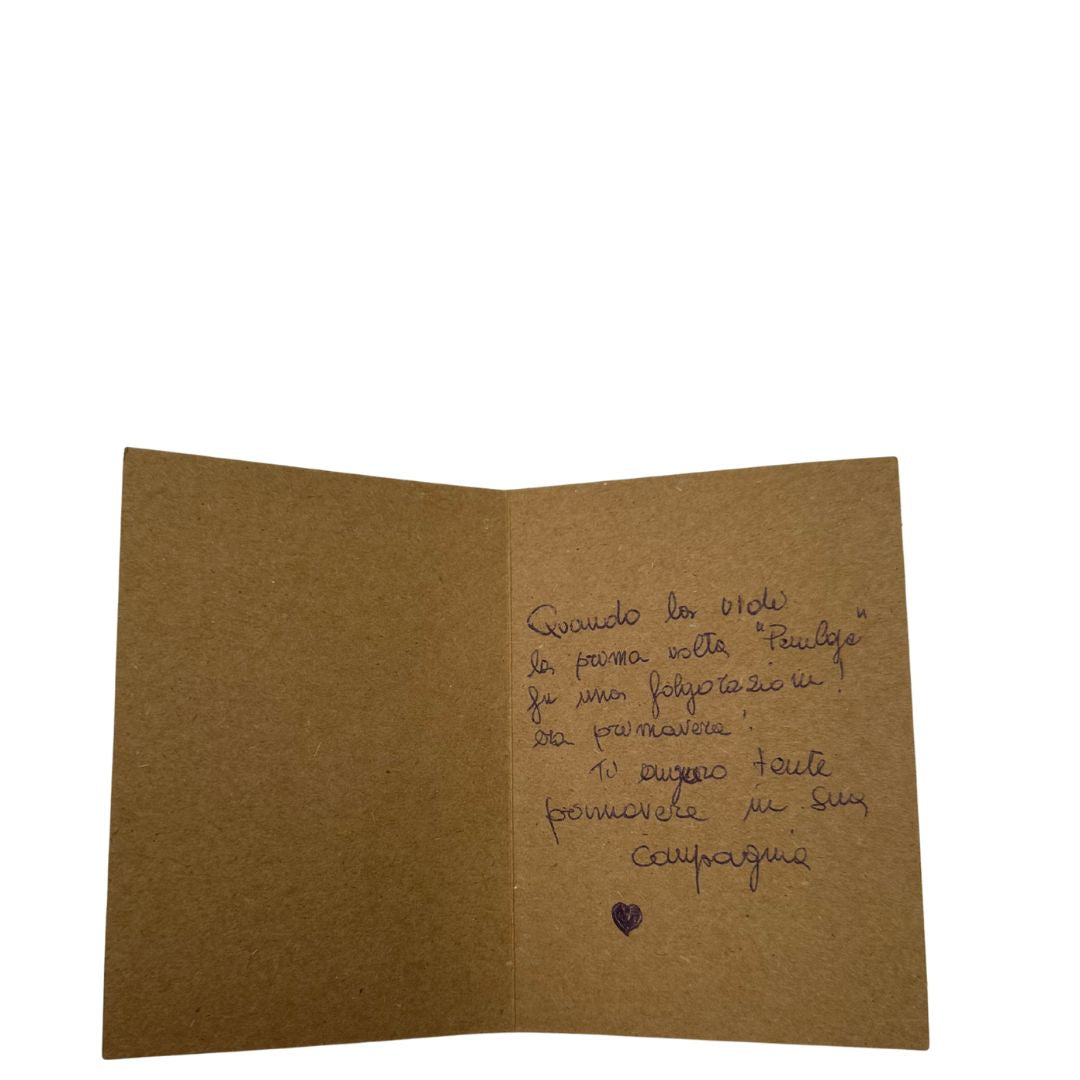 Quando la vidi
la prima volta "Penelope"
fu una folgorazione!
era primavera!
Ti auguro tante
primavere in sua
compagnia